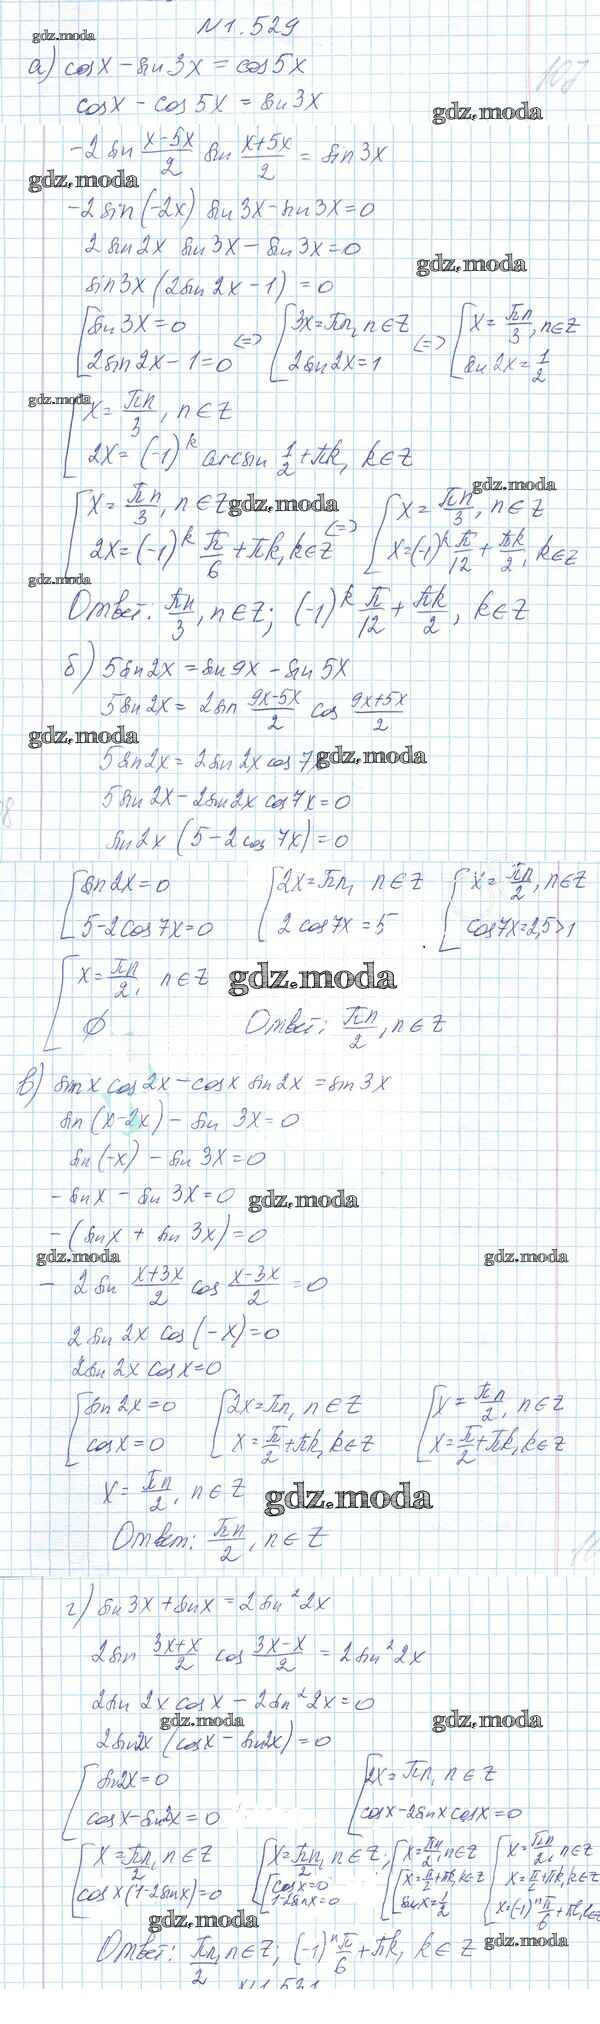 N 1.529
gdz.moda
а) cos x - sin 3x = cos 5x
cos x - cos 5x = sin 3x
gdz.moda
-2 sin (x-5x)/2 sin (x+5x)/2 = sin 3x
gdz.moda
-2 sin (-2x) sin 3x - sin 3x = 0
2 sin 2x sin 3x - sin 3x = 0
gdz.moda
sin 3x (2 sin 2x - 1) = 0
[ sin 3x = 0 <=> [ 3x = πn, n ∈ Z <=> [ x = πn/3, n ∈ Z
2 sin 2x - 1 = 0 2 sin 2x = 1 sin 2x = 1/2
gdz.moda
[ x = πn/3, n ∈ Z
2x = (-1)^k arcsin 1/2 + πk, k ∈ Z
gdz.moda
[ x = πn/3, n ∈ Z gdz.moda <=> [ x = πn/3, n ∈ Z
2x = (-1)^k π/6 + πk, k ∈ Z x = (-1)^k π/12 + πk/2, k ∈ Z
gdz.moda
Ответ: πn/3, n ∈ Z; (-1)^k π/12 + πk/2, k ∈ Z
б) 5 sin 2x = sin 9x - sin 5x
5 sin 2x = 2 sin (9x-5x)/2 cos (9x+5x)/2
gdz.moda
5 sin 2x = 2 sin 2x cos 7x
gdz.moda
5 sin 2x - 2 sin 2x cos 7x = 0
sin 2x (5 - 2 cos 7x) = 0
[ sin 2x = 0 [ 2x = πn, n ∈ Z [ x = πn/2, n ∈ Z
5 - 2 cos 7x = 0 2 cos 7x = 5 cos 7x = 2,5 > 1
[ x = πn/2, n ∈ Z gdz.moda
∅ Ответ: πn/2, n ∈ Z
в) sin x cos 2x - cos x sin 2x = sin 3x
sin (x-2x) - sin 3x = 0
sin (-x) - sin 3x = 0
- sin x - sin 3x = 0 gdz.moda
- (sin x + sin 3x) = 0
gdz.moda gdz.moda
- 2 sin (x+3x)/2 cos (x-3x)/2 = 0
2 sin 2x cos (-x) = 0
2 sin 2x cos x = 0
[ sin 2x = 0 [ 2x = πn, n ∈ Z [ x = πn/2, n ∈ Z
cos x = 0 x = π/2 + πk, k ∈ Z x = π/2 + πk, k ∈ Z
x = πn/2, n ∈ Z gdz.moda
Ответ: πn/2, n ∈ Z
г) sin 3x + sin x = 2 sin² 2x
2 sin (3x+x)/2 cos (3x-x)/2 = 2 sin² 2x
2 sin 2x cos x - 2 sin² 2x = 0
gdz.moda gdz.moda
2 sin 2x (cos x - sin 2x) = 0
[ sin 2x = 0 [ 2x = πn, n ∈ Z
cos x - sin 2x = 0 cos x - 2 sin x cos x = 0
[ x = πn/2, n ∈ Z [ x = πn/2, n ∈ Z; [ x = πn/2, n ∈ Z [ x = πn/2, n ∈ Z
cos x (1 - 2 sin x) = 0 [ cos x = 0 [ x = π/2 + πk, k ∈ Z x = π/2 + πk, k ∈ Z
1 - 2 sin x = 0 sin x = 1/2 x = (-1)^n π/6 + πk, k ∈ Z
gdz.moda
Ответ: πn/2, n ∈ Z; (-1)^n π/6 + πk, k ∈ Z
gdz.moda